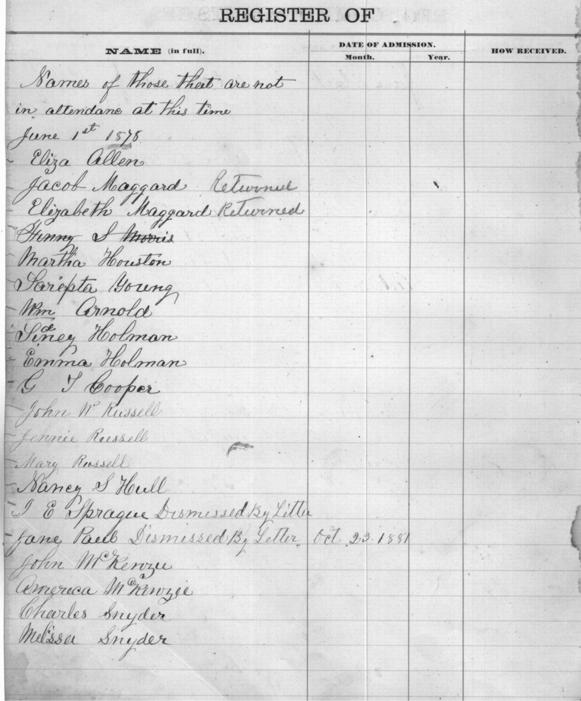 REGISTER OF
NAME (in full).
DATE OF ADMISSION.
HOW RECEIVED.
Month.
Year.
Names of those that are not
in attendanc at this time
June 1st 1878
Eliza Allen
Jacob Maggard Returned
Elizabeth Maggard Returned
S Morris
Martha Houston
Sarepta Young
Wm Arnold
Sidney Holman
Emma Holman
G T Cooper
John W Russell
Jennie Russell
Mary Russell
Nancy S Hull
E Sprague Dismissed By Letter
Jane Paul Dismissed By Letter Oct 23 1881
John McKenzie
America McKenzie
Charles Snyder
Melissa Snyder